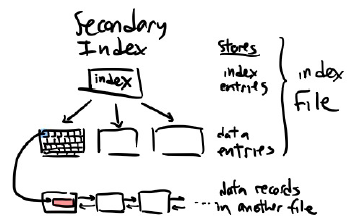 Secondary
Index
index
Stores
index
entries
data
entries
index
File
data records
in another file